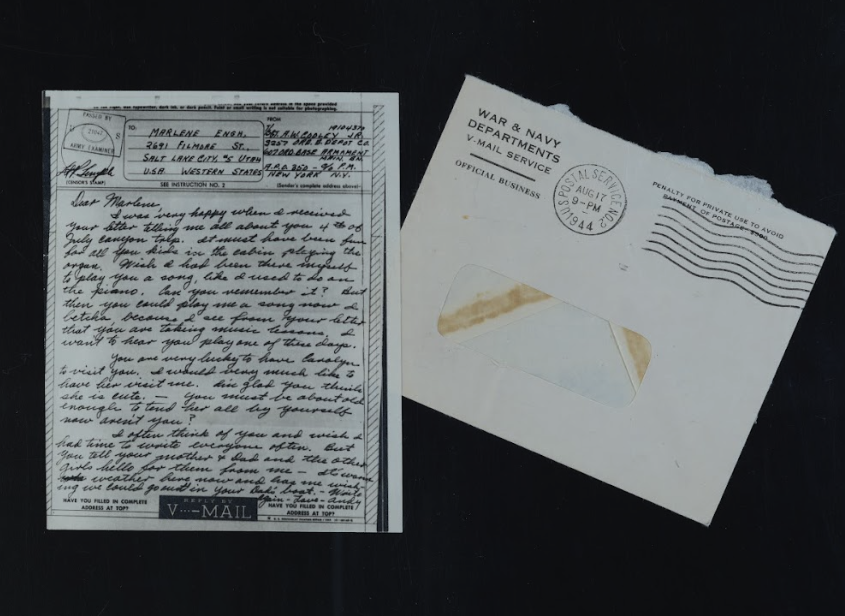 PASSED BY
U S
ARMY EXAMINER
(CENSOR'S STAMP)
TO:
MARLENE ENGH,
2691 FILMORE ST.,
SALT LAKE CITY, 5 UTAH
U.S.A. WESTERN STATES
SEE INSTRUCTION NO. 2
FROM
19104370
A.W. COOLEY JR.
3257 ORD. B. DEPOT CO.
607 ORD BASE ARMAMENT
MAIN. BN.
A.P.O. 350 - % P.M.
NEW YORK N.Y.
(Sender's complete address above)
Dear Marlene,
I was very happy when I received
your letter telling me all about you 4th of
July canyon trip. It must have been fun
for all you kids in the cabin playing the
organ. Wish I had been there myself
to play you a song, like I used to do on
the piano. Can you remember it? But
then you could play me a song now I
betcha because I see from your letter
that you are taking music lessons. I
want to hear you play one of these days.
You are very lucky to have Carolyn
to visit you. I would very much like to
have her visit me. Am glad you think
she is cute. — You must be about old
enough to tend her all by yourself
now aren't you?
I often think of you and wish I
had time to write everyone often. But
you tell your mother & Dad and the other
girls hello for them from me —
weather here now and has me wish-
ing we could go out in your Dad's boat. - Write
again - Love - Andy
HAVE YOU FILLED IN COMPLETE
ADDRESS AT TOP?
REPLY BY
V···—MAIL
HAVE YOU FILLED IN COMPLETE
ADDRESS AT TOP?
WAR & NAVY
DEPARTMENTS
V-MAIL SERVICE
OFFICIAL BUSINESS
U.S. POSTAL SERVICE NO. 2
AUG 17
9-PM
1944
PENALTY FOR PRIVATE USE TO AVOID
PAYMENT OF POSTAGE $300